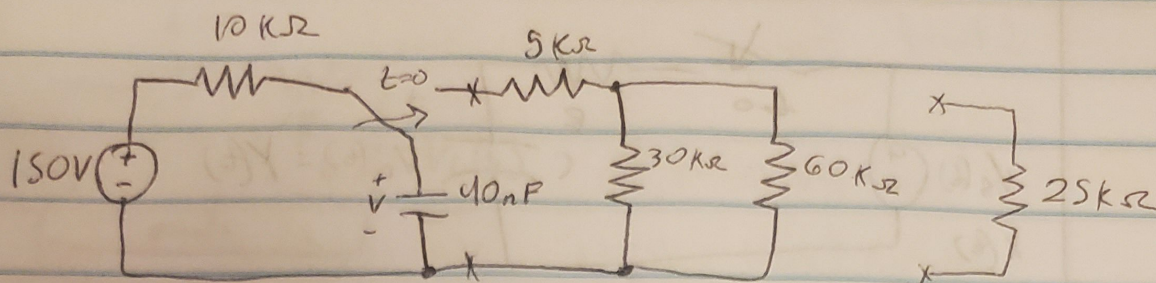 10KΩ
5KΩ
t=0
150V
+
-
+
V
-
40nF
30KΩ
60KΩ
25KΩ